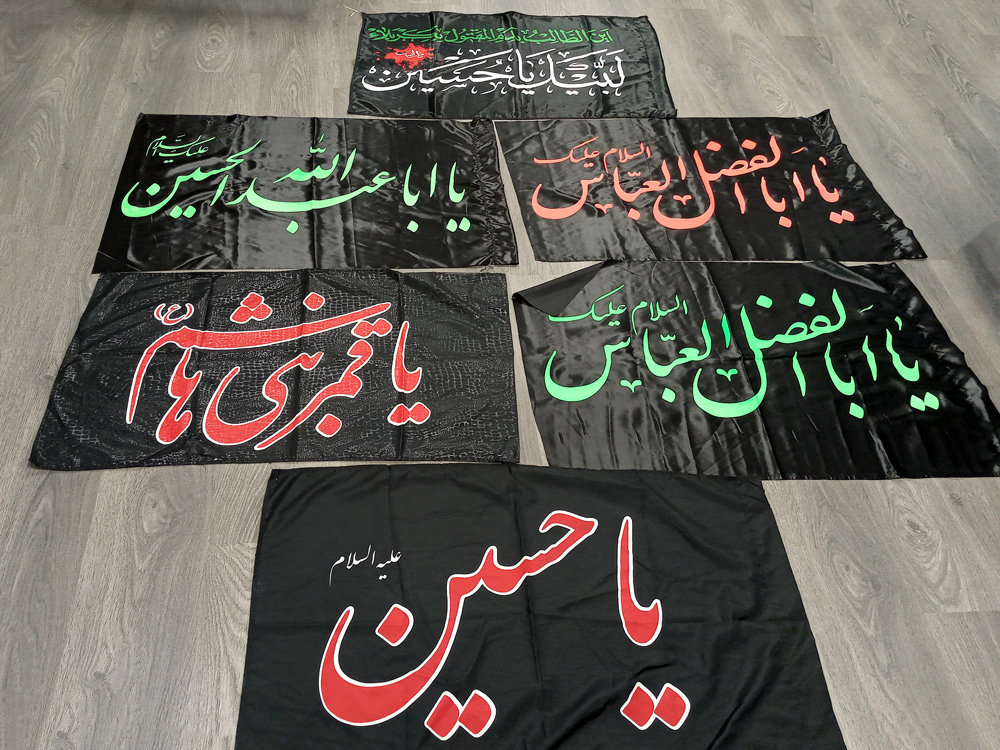 این الطالب بدم المقتول بکربلاء
لبیک یا حسین
یا ابا عبدالله الحسین
علیک السلام
السلام علیک
یا ابا الفضل العباس
یا قمر بنی هاشم (ع)
السلام علیک
یا ابا الفضل العباس
یا حسین
علیه السلام